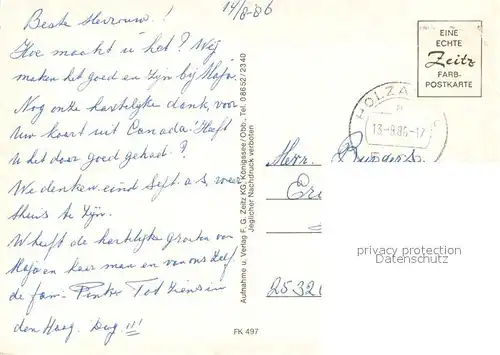 14/8-86
Beste Mevrouw!
Hoe maakt u het? Wij
maken het goed en zijn bij Hajo.
Nog onze hartelijke dank, voor
Uw kaart uit Canada. Heeft
U het daar goed gehad?
We denken eind Sept. a.s. weer
thuis te zijn.
U heeft de hartelijke groeten van
Hajo en haar man en van ons zelf
de fam. Tot Ziens in
den Haag. Dag!!!
Aufnahme u. Verlag F. G. Zeitz KG, Königssee/Obb., Tel. 08652/2340
Jeglicher Nachdruck verboten
FK 497
EINE
ECHTE
Zeitz
FARB-
POSTKARTE
HOLZA
13-8.86-17
Herr
2532
privacy protection
for AK_Ansichtskarten